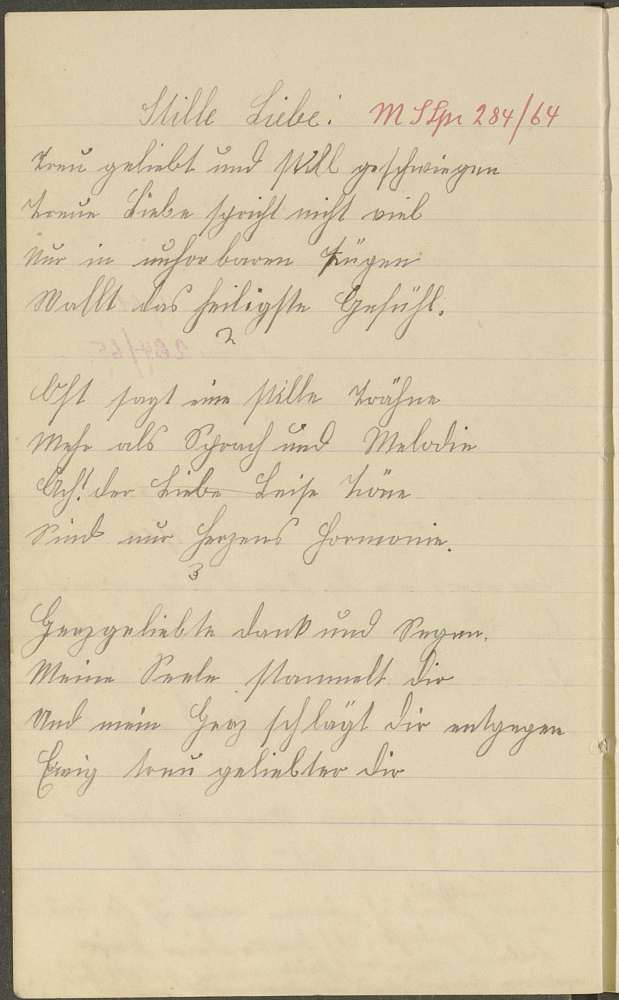 Stille Liebe! M S Spr 284/64
Treu geliebt und still geschwiegen
Treue Liebe spricht nicht viel
Nur in unhorbaren Zügen
Wallt das heiligste Gefühl.
2
Oft sagt eine stille Trähne
Mehr als Sprach und Melodie
Ach! der Liebe Leise Töne
Sind nur Herzens Hormonie.
3
Herzgeliebte dank und Segen.
Meine Seele stammelt dir
Und mein Herz schlägt dir entgegen
Ewig treu geliebter dir